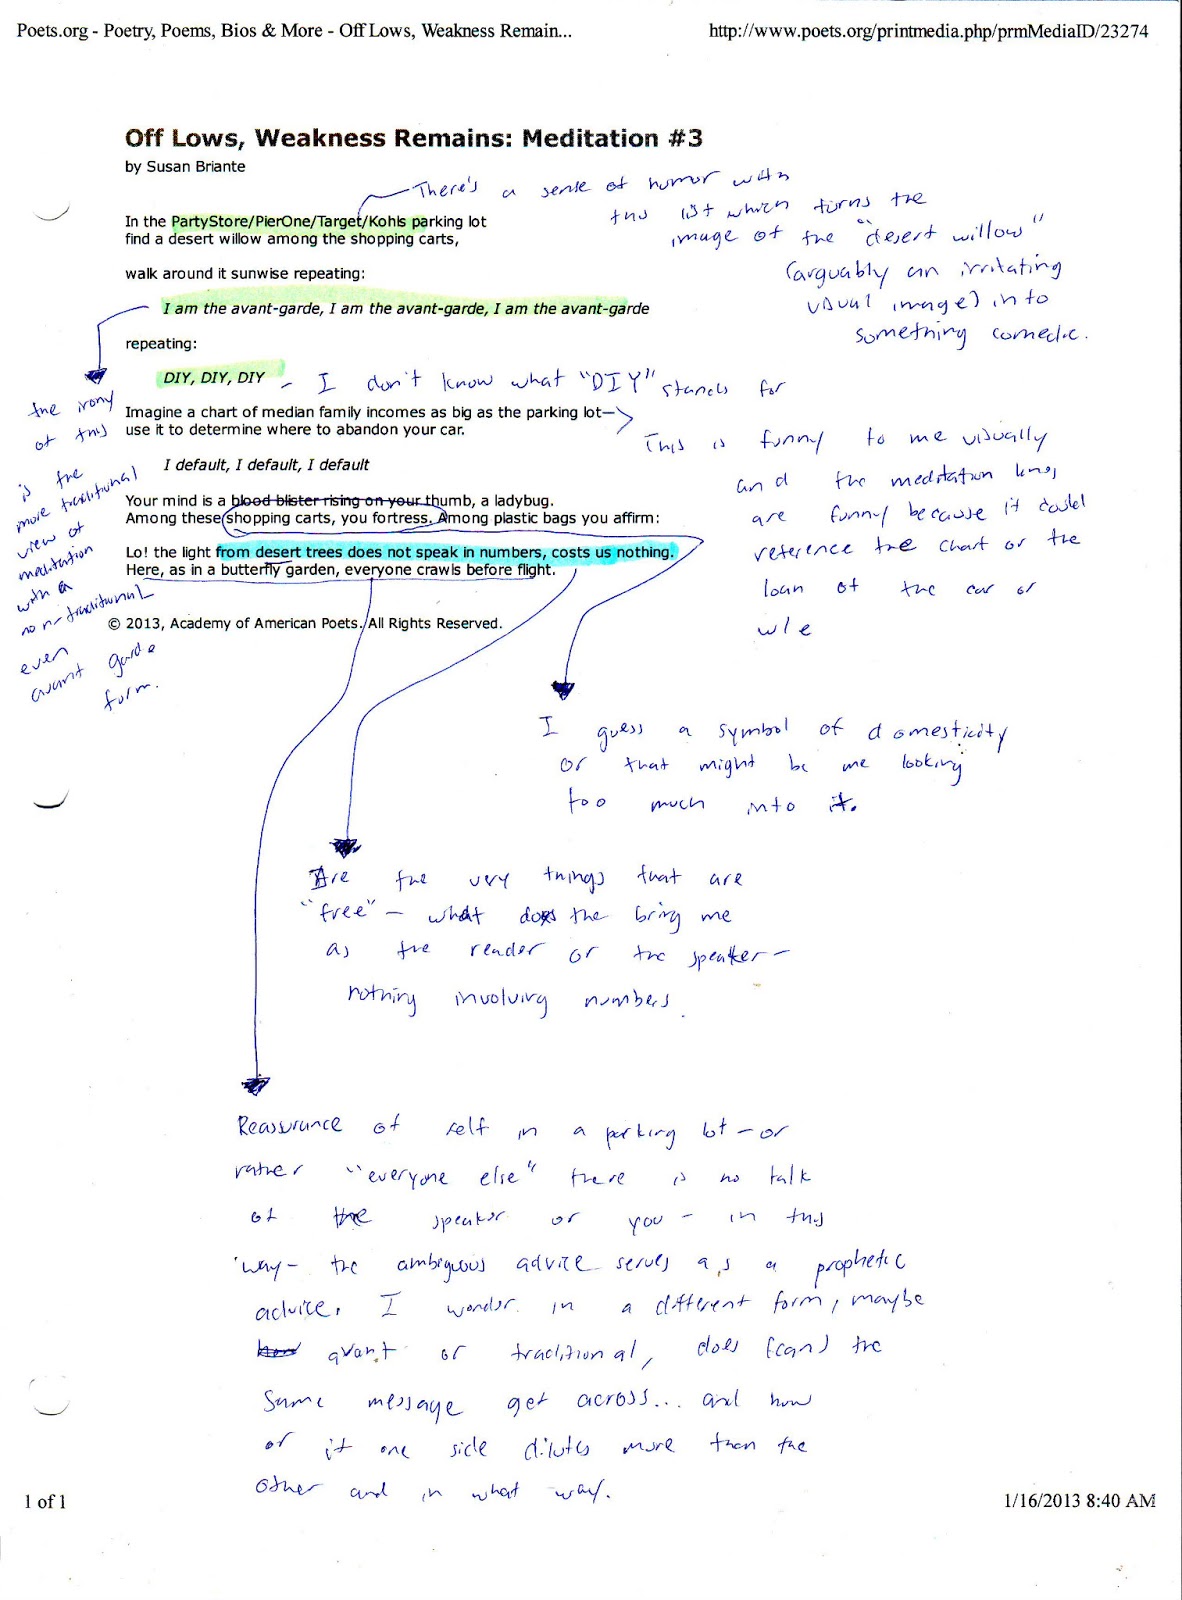 Poets.org - Poetry, Poems, Bios & More - Off Lows, Weakness Remain...
http://www.poets.org/printmedia.php/prmMediaID/23274
Off Lows, Weakness Remains: Meditation #3
by Susan Briante
There's a sense of humor with
this list which turns the
image of the "desert willow"
(arguably an irritating
visual image) in to
something comedic.
In the PartyStore/PierOne/Target/Kohls parking lot
find a desert willow among the shopping carts,
walk around it sunwise repeating:
I am the avant-garde, I am the avant-garde, I am the avant-garde
repeating:
DIY, DIY, DIY
- I don't know what "DIY" stands for
the irony
of this
is the
more traditional
view of
meditation
with a
non-traditional
even
avant garde
form.
Imagine a chart of median family incomes as big as the parking lot—
use it to determine where to abandon your car.
I default, I default, I default
This is funny to me visually
and the meditation lines
are funny because it could
reference the chart or the
loan of the car or
Your mind is a blood blister rising on your thumb, a ladybug.
Among these shopping carts, you fortress. Among plastic bags you affirm:
Lo! the light from desert trees does not speak in numbers, costs us nothing.
Here, as in a butterfly garden, everyone crawls before flight.
© 2013, Academy of American Poets. All Rights Reserved.
I guess a symbol of domesticity
or that might be me looking
too much into it.
Are the very things that are
"free" - what does the bring me
as the reader or the speaker -
nothing involving numbers.
Reassurance of self in a parking lot - or
rather "everyone else" there is no talk
of the speaker or you - in this
way - the ambiguous advice serves as a prophetic
advice. I wonder in a different form, maybe
avant or traditional, does (can) the
same message get across... and how
or if one side dilutes more than the
other and in what way.
1 of 1
1/16/2013 8:40 AM